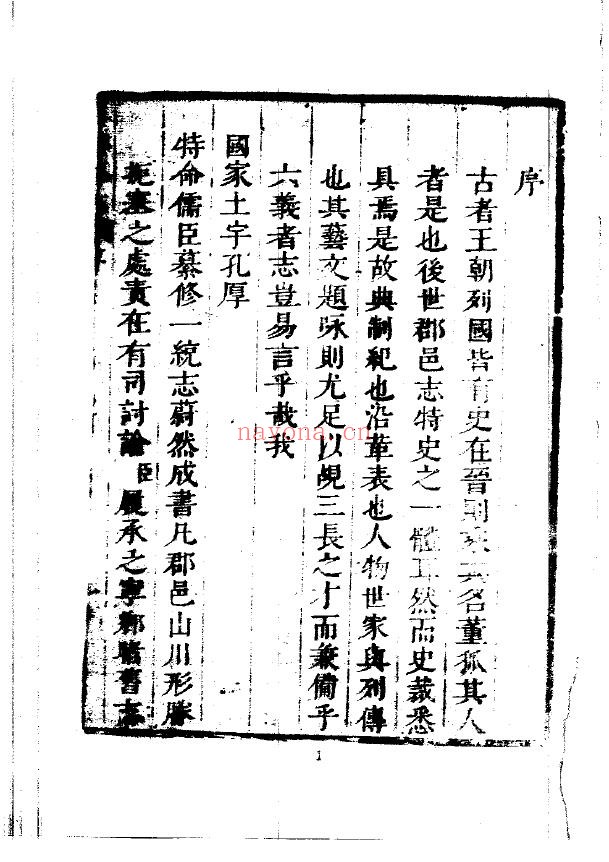 序
古者王朝列國皆有史在晉則 其名董狐其人
者是也後世郡邑志特史之一體耳然而史裁悉
具焉是故典制紀也沿革表也人物世家與列傳
也其藝文題咏則尤足以覘三長之才而兼備乎
六義者志豈易言乎哉我
國家土宇孔厚
特命儒臣纂修一統志蔚然成書凡郡邑山川形勝
扼塞之處責在有司討論臣 展承乏寧鄉 舊志
nayona.cn
1